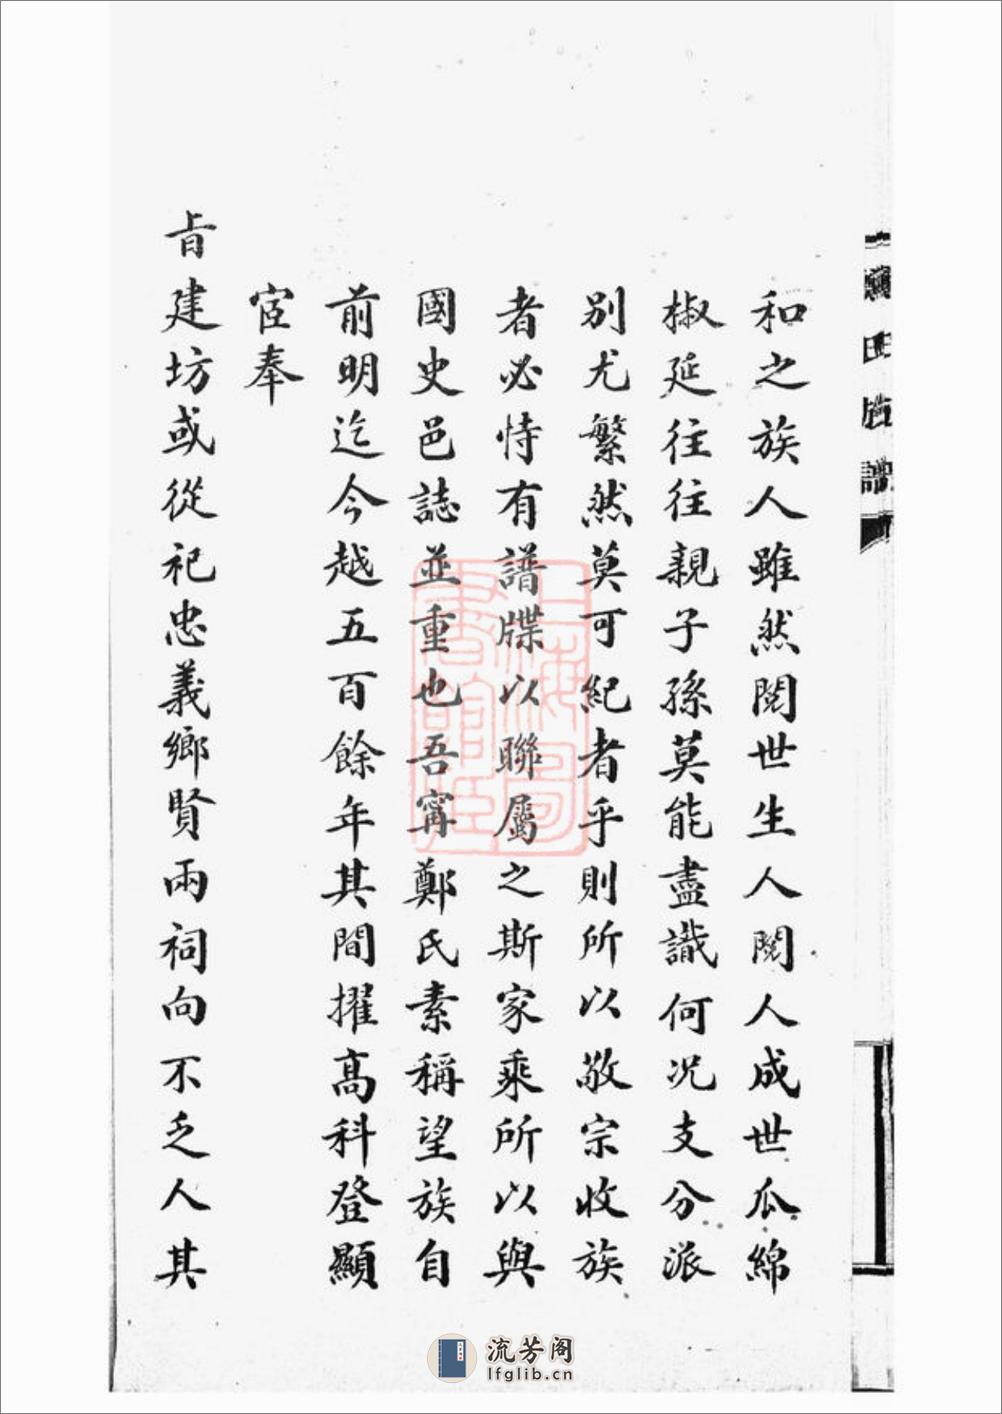 和之族人雖然閱世生人閱人成世瓜綿
椒延往往親子孫莫能盡識何况支分派
别尤繁然莫可紀者乎則所以敬宗收族
者必恃有譜牒以聯屬之斯家乘所以與
國史邑誌並重也吾甯鄭氏素稱望族自
前明迄今越五百餘年其間擢高科登顯
宦奉
旨建坊或從祀忠義鄉賢兩祠向不乏人其
氏族譜
上海圖書館藏
流芳阁
lfglib.cn